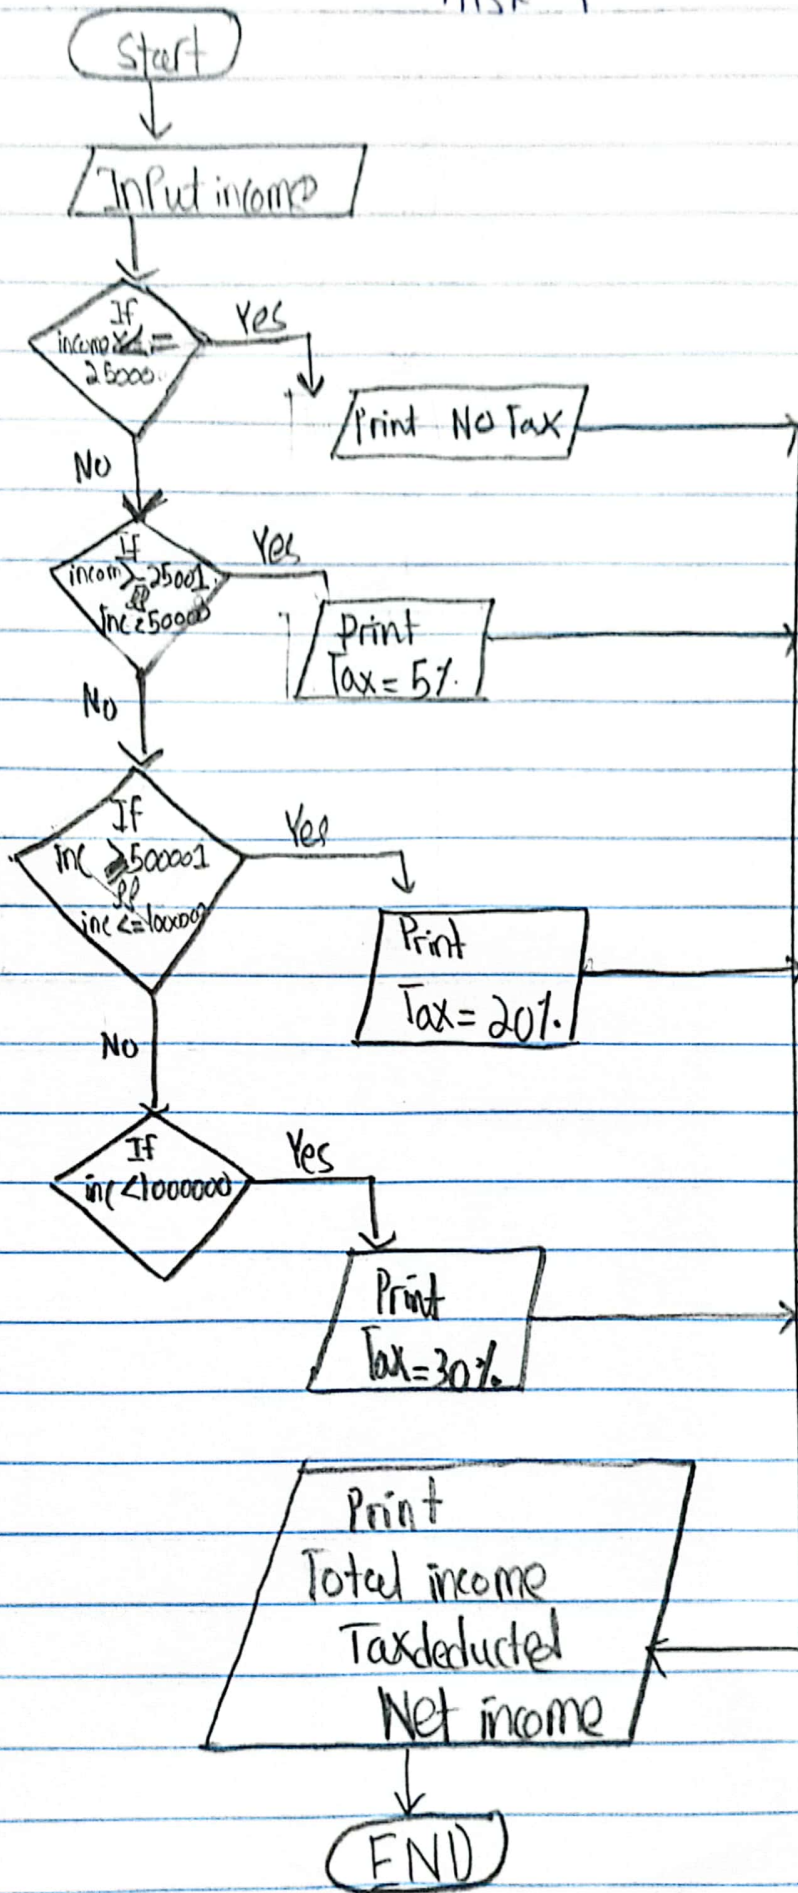 Start
InPut income
If
income <=
25000
Yes
Print No Tax
No
If
incom>=25001
Yes
Print
Tax = 5%
No
If
inc >500001
&&
inc <=1000000
Yes
Print
Tax = 20%
No
If
inc <1000000
Yes
Print
Tax=30%
Print
Total income
Taxdeducted
Net income
END